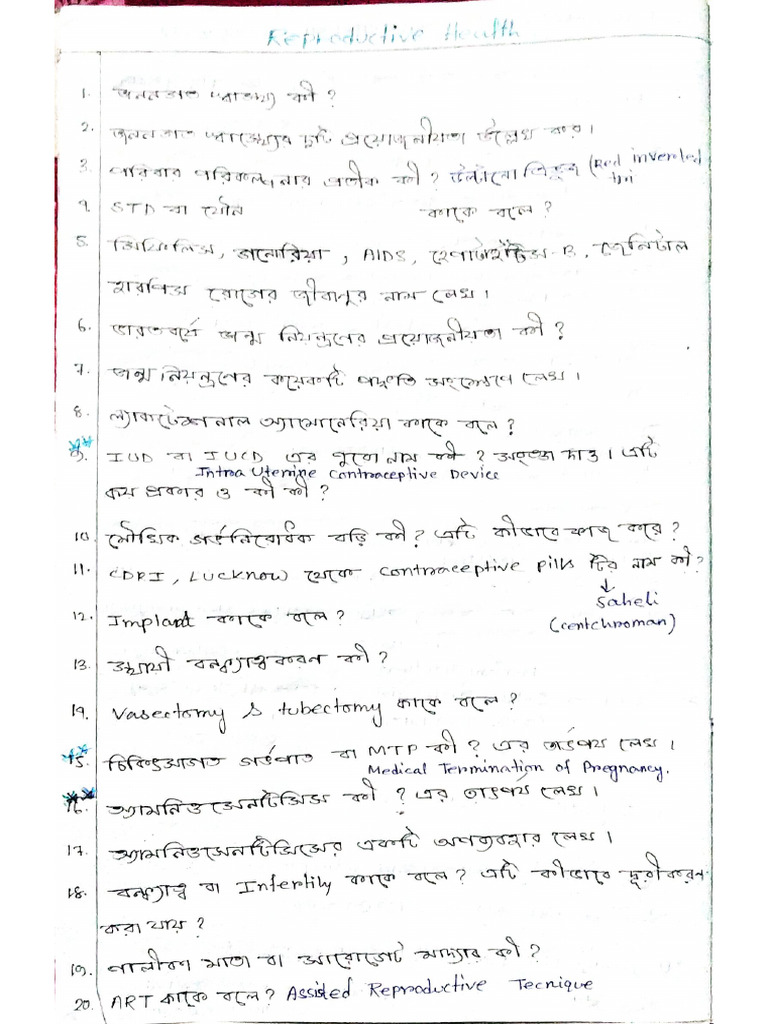 Reproductive Health
1. জননগত স্বাস্থ্য কী ?
2. জননগত স্বাস্থ্যের দুটি প্রয়োজনীয়তা উল্লেখ কর ।
3. পরিবার পরিকল্পনার প্রতীক কী ? উল্টানো ত্রিভুজ (Red inverated
tri
4. STD বা যৌন কাকে বলে ?
5. সিফিলিস, গনোরিয়া, AIDS, হেপাটাইটিস-B, জেনিটাল
হারপিস রোগের জীবাণুর নাম লেখ ।
6. ভারতবর্ষে জন্ম নিয়ন্ত্রণের প্রয়োজনীয়তা কী ?
7. জন্ম নিয়ন্ত্রণের কয়েকটি পদ্ধতি সংক্ষেপে লেখ ।
8. ল্যাকটেশনাল অ্যামেনোরিয়া কাকে বলে ?
9. IUD বা IUCD এর পুরো নাম কী ? সংজ্ঞা দাও । এটি
Intra Uterine Contraceptive Device
কয় প্রকার ও কী কী ?
10. মৌখিক গর্ভনিরোধক বড়ি কী ? এটি কীভাবে কাজ করে ?
11. CDRI, Lucknow থেকে contraceptive pills টির নাম কী ?
↓
Saheli
(centchroman)
12. Implant কাকে বলে ?
13. স্থায়ী বন্ধ্যাত্বকরণ কী ?
14. Vasectomy & tubectomy কাকে বলে ?
15. চিকিৎসাগত গর্ভপাত বা MTP কী ? এর তাৎপর্য লেখ ।
Medical Termination of Pregnancy.
16. অ্যামনিওসেনটেসিস কী ? এর তাৎপর্য লেখ ।
17. অ্যামনিওসেনটেসিসের একটি অপব্যবহার লেখ ।
18. বন্ধ্যাত্ব বা Infertility কাকে বলে ? এটি কীভাবে দূরীকরণ
করা যায় ?
19. পালিকা মাতা বা সারোগেট মাদার কী ?
20. ART কাকে বলে ? Assisted Reproductive Tecnique